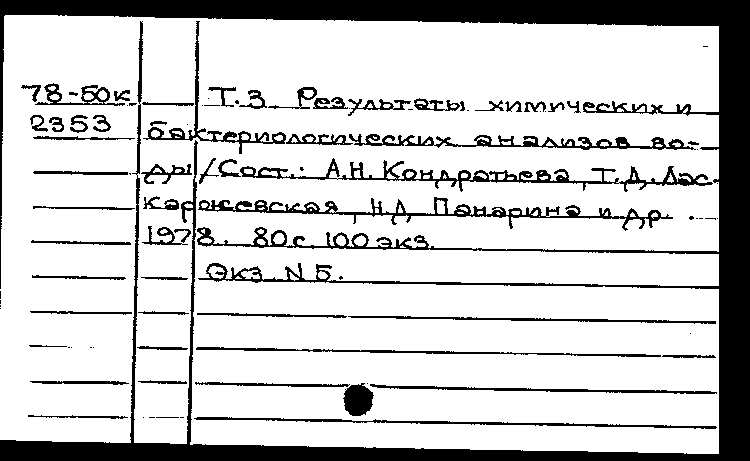 78-50к Т.3 Результаты химических и
2353 бактериологических анализов во-
ды/Сост.: А.Н. Кондратьева, Т.Д. Лас-
каржевская, Н.Д. Панарина и др.
1978. 80с. 100 экз.
Экз. N 5.